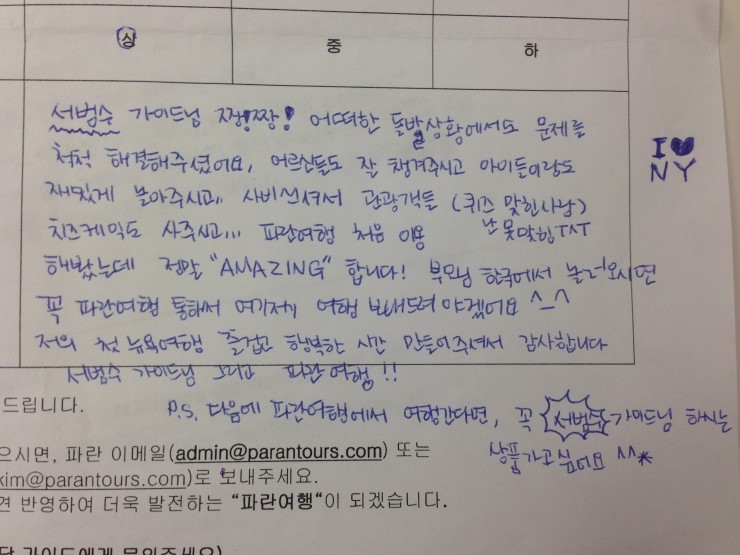 상 중 하
서범수 가이드님 짱!짱! 어떠한 돌발상황에서도 문제를
척척 해결해주셨어요, 어르신들도 잘 챙겨주시고 아이들이랑도
재밌게 놀아주시고,, 사비쓰셔서 관광객들 (퀴즈 맞힌사람)
치즈케익도 사주시고,,, 파란여행 처음 이용 난 못맞힘 TAT
해봤는데 정말 "AMAZING" 합니다! 부모님 한국에서 놀러오시면
꼭 파란여행 통해서 여기저기 여행 보내드려야겠어요 ^_^
저의 첫 뉴욕여행 즐겁고 행복한 시간 만들어주셔서 감사합니다
서범수 가이드님 그리고 파란여행!!
I ♥
NY
P.S. 다음에 파란여행에서 여행간다면, 꼭 서범수 가이드님 하시는
상품가고싶어요 ^^*
드립니다.
으시면, 파란 이메일(admin@parantours.com) 또는
kim@parantours.com)로 보내주세요.
견 반영하여 더욱 발전하는 “파란여행“이 되겠습니다.